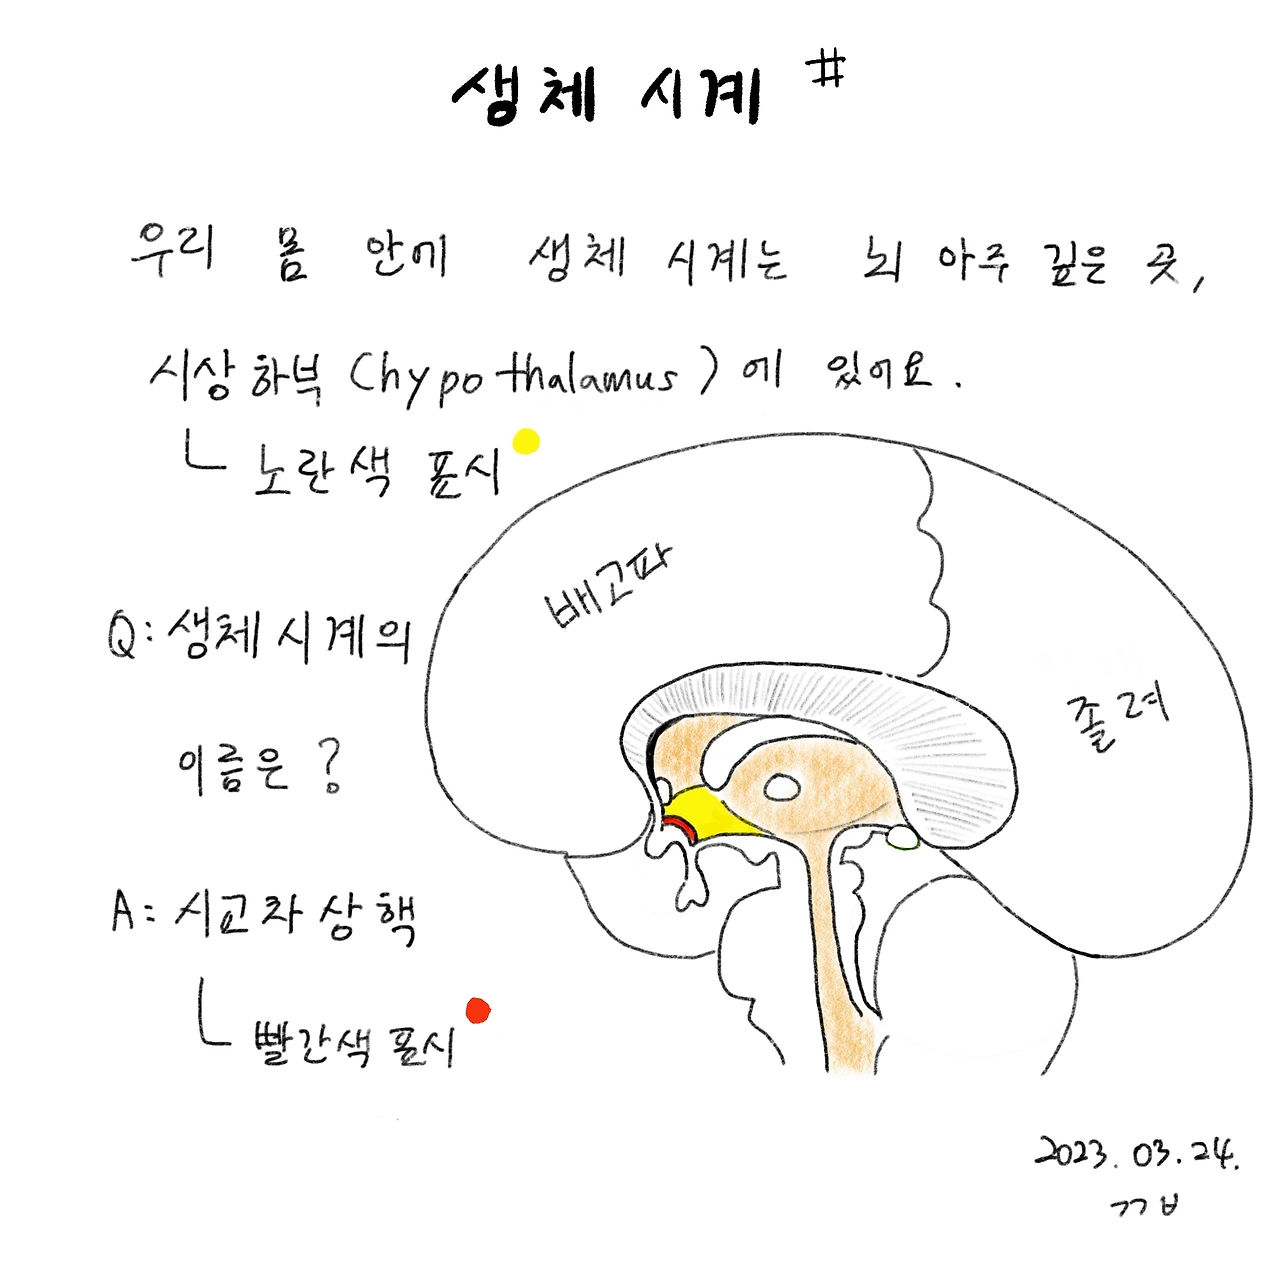 생체 시계 #
우리 몸 안에 생체 시계는 뇌 아주 깊은 곳,
시상하부 (hypothalamus) 에 있어요.
노란색 표시
배고파
Q: 생체시계의
졸려
이름은?
A: 시교차상핵
빨간색 표시
2023.03.24.
ㄲㅂ